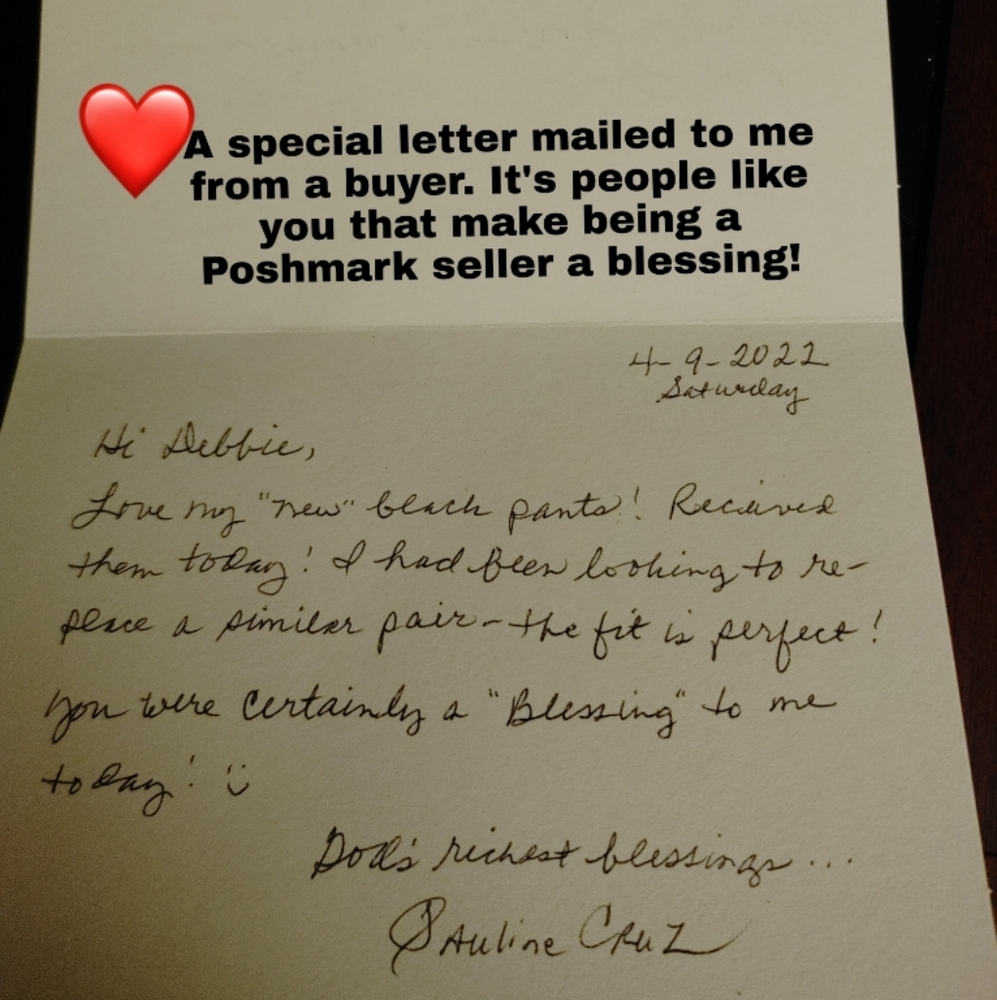 A special letter mailed to me
from a buyer. It's people like
you that make being a
Poshmark seller a blessing!
4-9-2022
Saturday
Hi Debbie,
Love my "new" black pants! Recieved
them today! I had been looking to re-
place a similar pair - the fit is perfect!
You were certainly a "Blessing" to me
today! :)
God's richest blessings...
Pauline Cruz